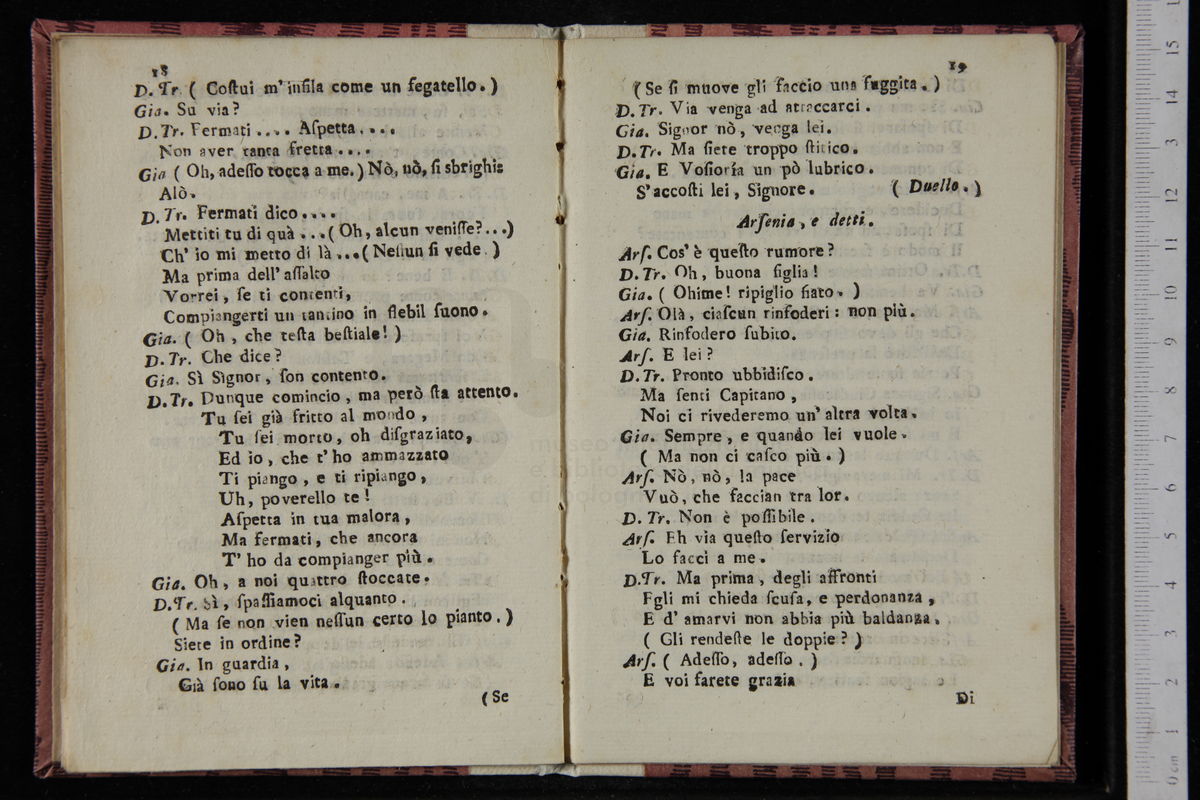 18
D. Tr. ( Coſtui m' infila come un fegatello. )
Gia. Su via?
D. Tr. Fermati .... Aſpetta ....
Non aver tanta fretta ....
Gia ( Oh, adeſſo tocca a me. ) Nò, nò, ſi sbrighi
Alò.
D. Tr. Fermati dico ....
Mettiti tu di quà ... ( Oh, alcun veniſſe? ... )
Ch' io mi metto di là ... ( Neſſun ſi vede. )
Ma prima dell' aſſalto
Vorrei, ſe ti contenti,
Compiangerti un tantino in flebil ſuono.
Gia. ( Oh, che teſta beſtiale! )
D. Tr. Che dice?
Gia. Sì Signor, ſon contento.
D. Tr. Dunque comincio, ma però ſta attento.
Tu ſei già fritto al mondo,
Tu ſei morto, oh diſgraziato,
Ed io, che t' ho ammazzato
Ti piango, e ti ripiango,
Uh, poverello te!
Aſpetta in tua malora,
Ma fermati, che ancora
T' ho da compianger più.
Gia. Oh, a noi quattro ſtoccate.
D. Tr. Sì, ſpaſſiamoci alquanto.
( Ma ſe non vien neſſun certo lo pianto. )
Siete in ordine?
Gia. In guardia,
Già ſono ſu la vita.
( Se
19
( Se ſi muove gli faccio una fuggita. )
D. Tr. Via venga ad attaccarci.
Gia. Signor nò, venga lei.
D. Tr. Ma ſiete troppo ſtitico.
Gia. E Voſioría un pò lubrico.
S' accoſti lei, Signore. ( Duello. )
Arſenia, e detti.
Arſ. Cos' è queſto rumore?
D. Tr. Oh, buona figlia!
Gia. ( Ohime! ripiglio fiato. )
Arſ. Olà, ciaſcun rinfoderi: non più.
Gia. Rinfodero ſubito.
Arſ. E lei?
D. Tr. Pronto ubbidiſco.
Ma ſenti Capitano,
Noi ci rivederemo un' altra volta.
Gia. Sempre, e quando lei vuole.
( Ma non ci caſco più. )
Arſ. Nò, nò, la pace
Vuò, che faccian tra lor.
D. Tr. Non è poſſibile.
Arſ. Eh via queſto ſervizio
Lo facci a me.
D. Tr. Ma prima, degli affronti
Egli mi chieda ſcuſa, e perdonanza,
E d' amarvi non abbia più baldanza.
( Gli rendeſte le doppie? )
Arſ. ( Adeſſo, adeſſo. )
E voi farete grazia
Di